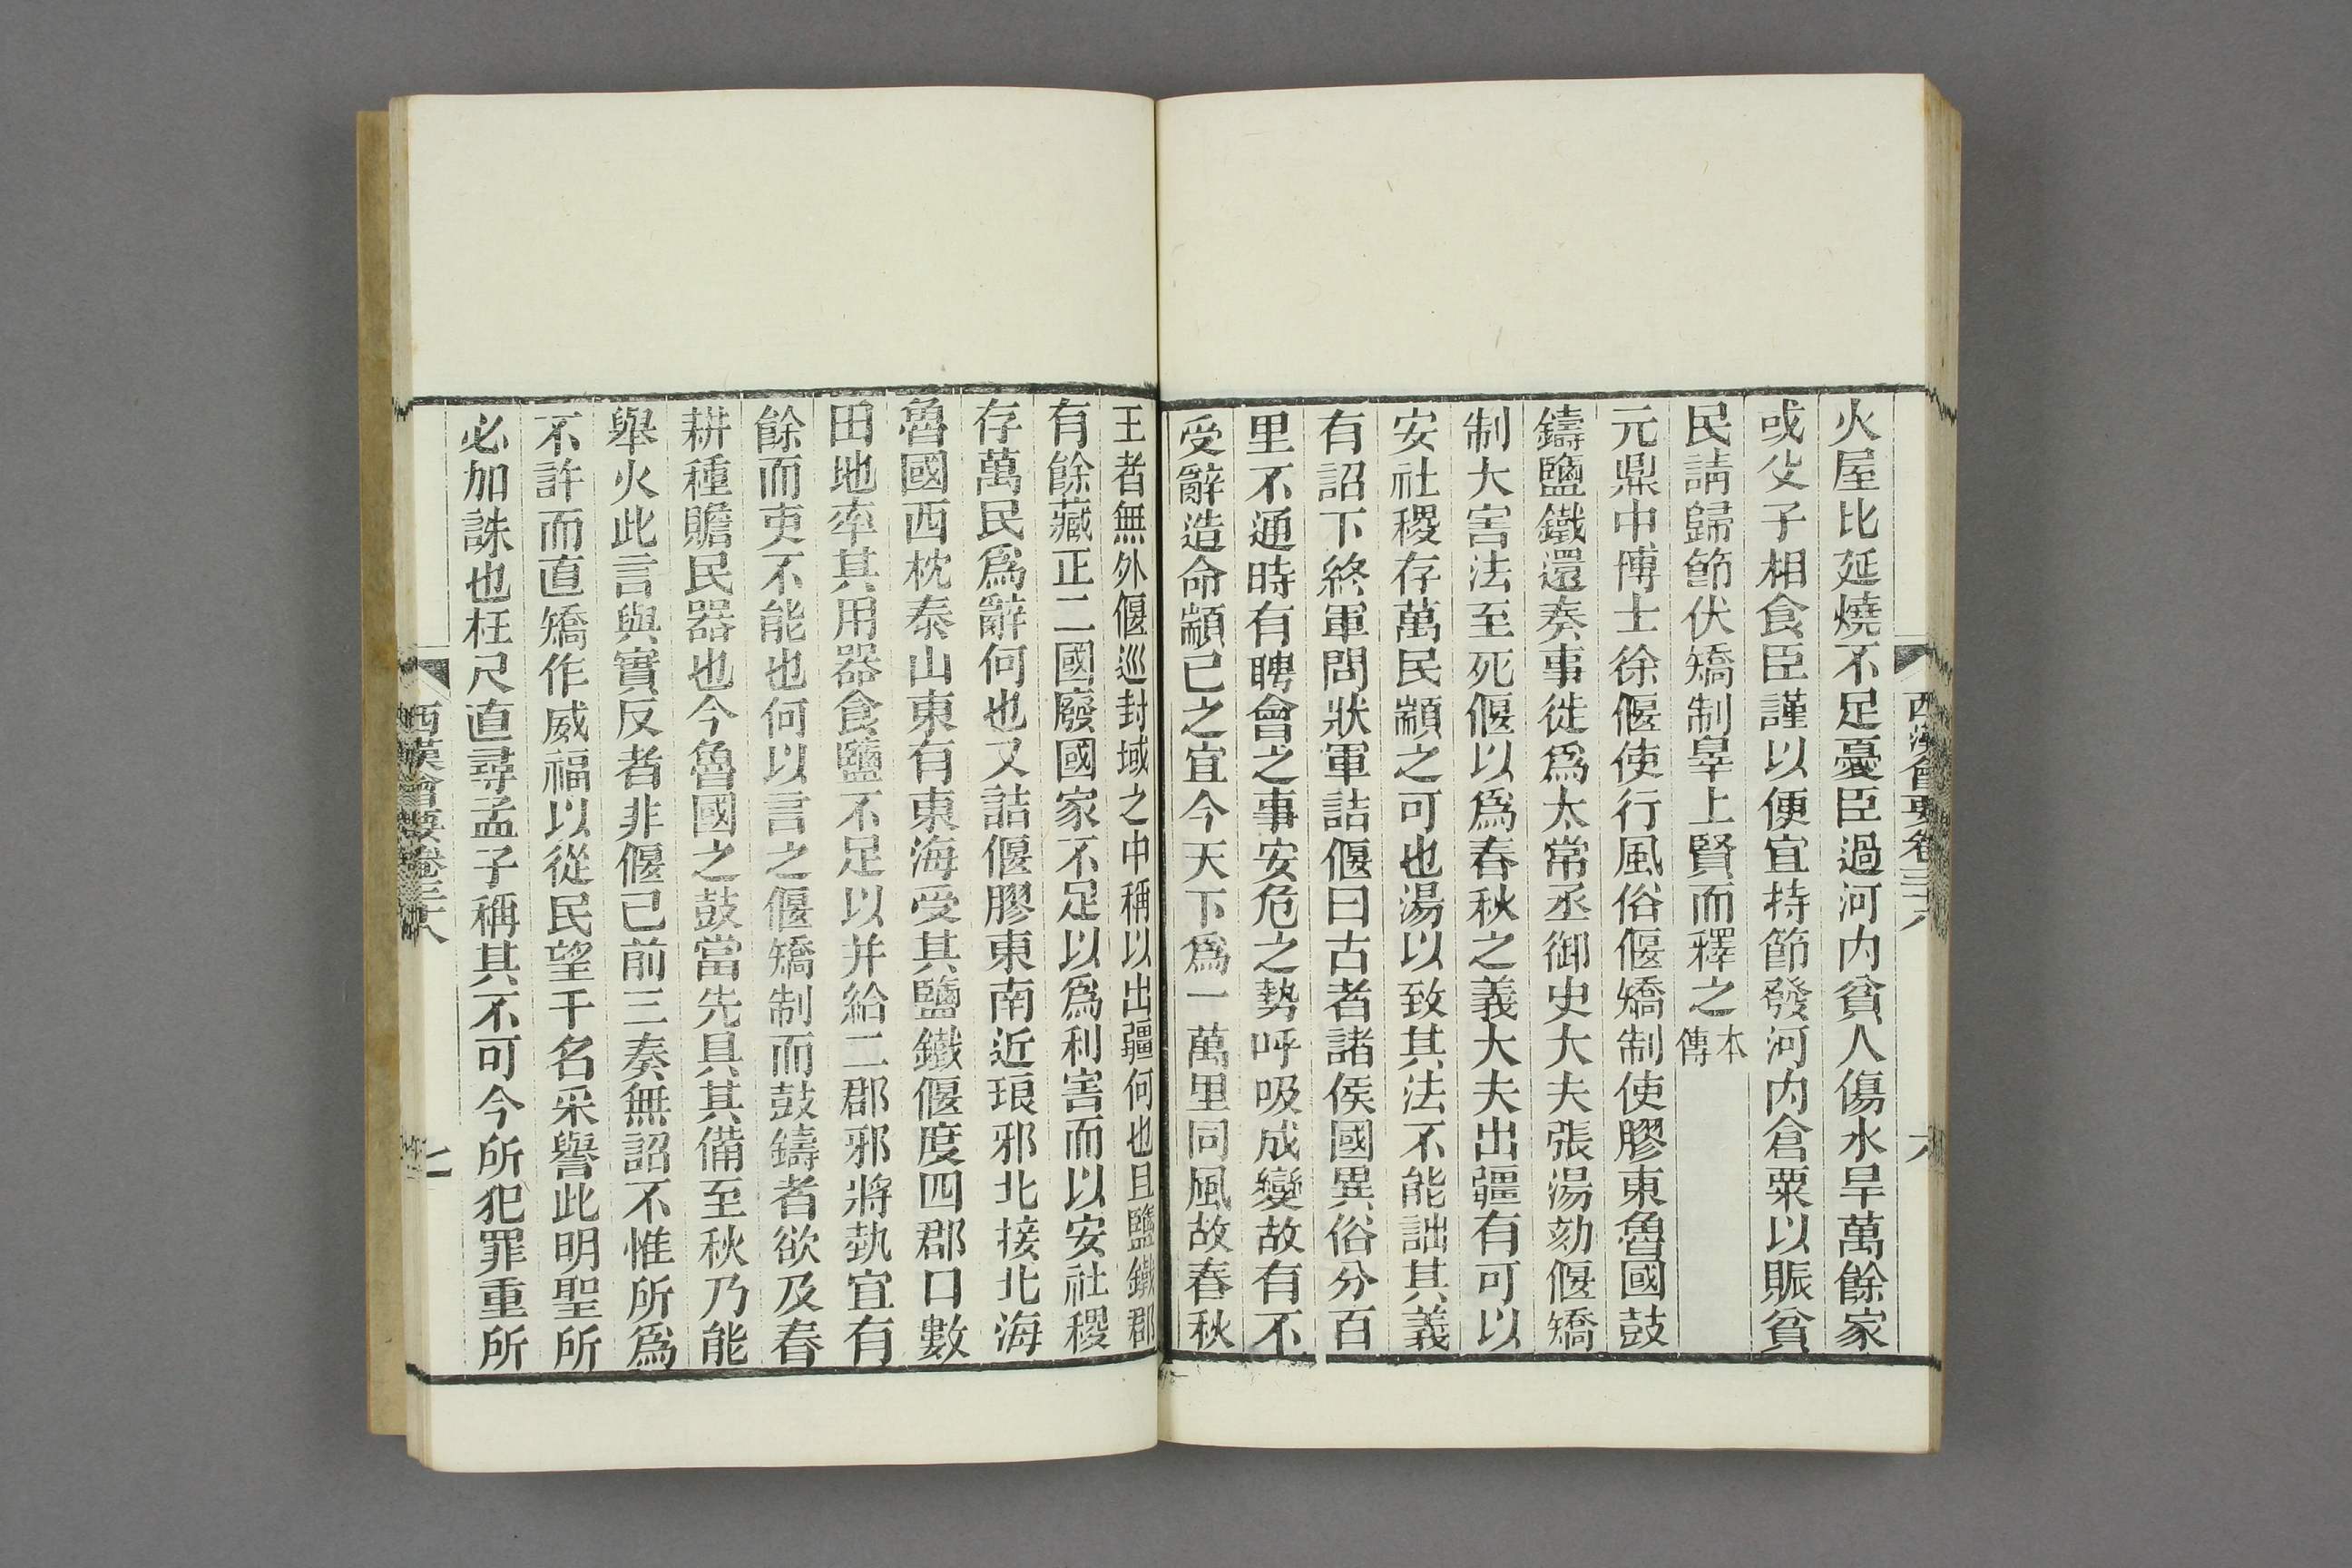 西漢會要卷三十八
六
火屋比延燒不足憂臣過河内貧人傷水旱萬餘家
或父子相食臣謹以便宜持節發河内倉粟以賑貧
民請歸節伏矯制辠上賢而釋之本傳
元鼎中博士徐偃使行風俗偃矯制使膠東魯國鼓
鑄鹽鐵還奏事徙爲太常丞御史大夫張湯劾偃矯
制大害法至死偃以爲春秋之義大夫出疆有可以
安社稷存萬民顓之可也湯以致其法不能詘其義
有詔下終軍問狀軍詰偃曰古者諸侯國異俗分百
里不通時有聘會之事安危之勢呼吸成變故有不
受辭造命顓己之宜今天下爲一萬里同風故春秋
王者無外偃巡封域之中稱以出疆何也且鹽鐵郡
有餘藏正二國廢國家不足以爲利害而以安社稷
存萬民爲辭何也又詰偃膠東南近琅邪北接北海
魯國西枕泰山東有東海受其鹽鐵偃度四郡口數
田地率其用器食鹽不足以并給二郡邪將埶宜有
餘而吏不能也何以言之偃矯制而鼓鑄者欲及春
耕種贍民器也今魯國之鼓當先具其備至秋乃能
舉火此言與實反者非偃已前三奏無詔不惟所爲
不許而直矯作威福以從民望干名采譽此明聖所
必加誅也枉尺直尋孟子稱其不可今所犯罪重所
西漢會要卷三十八
七